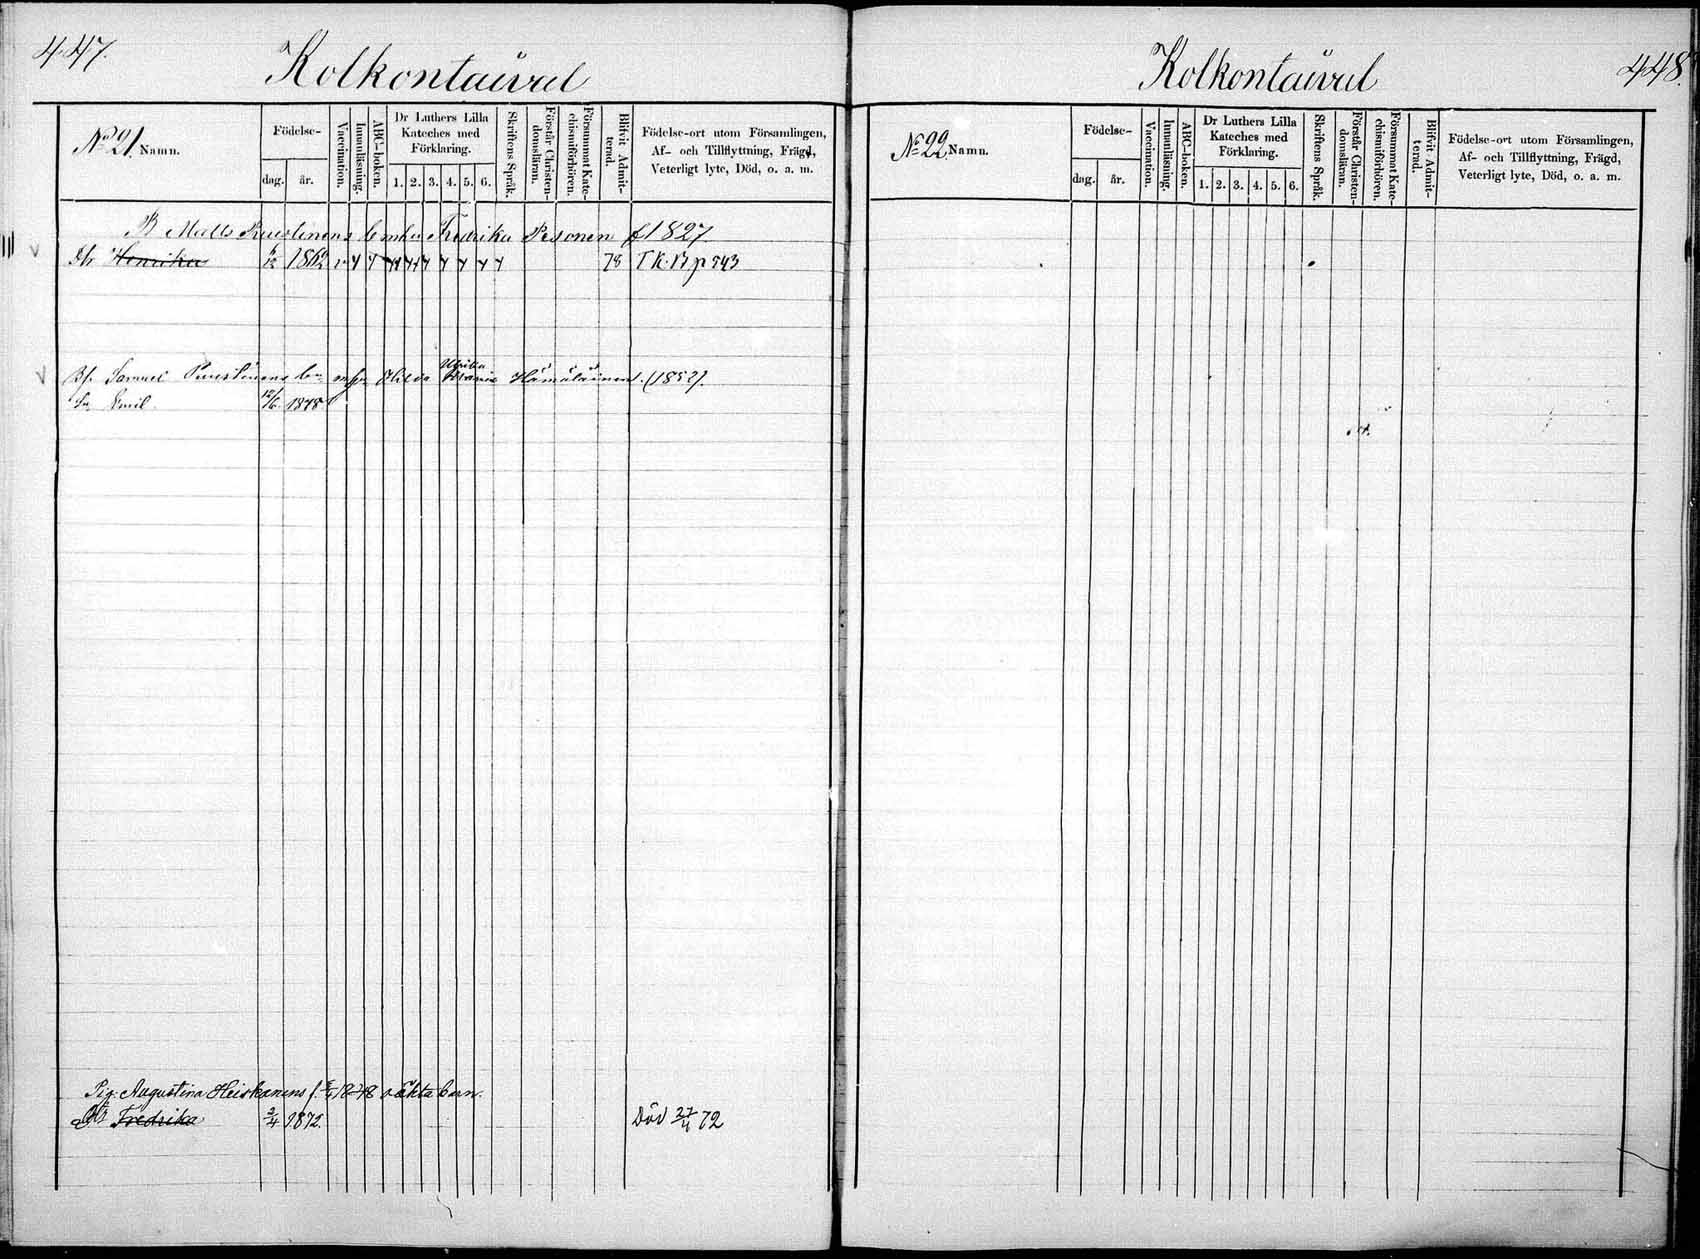 447.
Kolkontaival
No 21. Namn.
Födelse-
dag. år.
Vaccination.
Innanläsning.
ABC-boken.
Dr Luthers Lilla
Kateches med
Förklaring.
1. 2. 3. 4. 5. 6.
Skriftens Språk.
Förstår Christen-
domsläran.
Försummat Kate-
chismiförhören.
Blifvit Admit-
terad.
Födelse-ort utom Församlingen,
Af- och Tillflyttning, Frägd,
Veterligt lyte, Död, o. a. m.
B Matts Puustinens Fredrika Pesonen f 1827.
Dr Henrika 1862 78 T K. B p 543
Bf. Samuel Puustinens Hilda Ulrika Hämäläinen (1852).
Sn Emil 1878
Pig. Augustina Heiskanens f. 1848 oäkta barn.
Dr Fredrika 2/4 1872. Död 27/4 72
448.
Kolkontaival
No 22. Namn.
Födelse-
dag. år.
Vaccination.
Innanläsning.
ABC-boken.
Dr Luthers Lilla
Kateches med
Förklaring.
1. 2. 3. 4. 5. 6.
Skriftens Språk.
Förstår Christen-
domsläran.
Försummat Kate-
chismiförhören.
Blifvit Admit-
terad.
Födelse-ort utom Församlingen,
Af- och Tillflyttning, Frägd,
Veterligt lyte, Död, o. a. m.